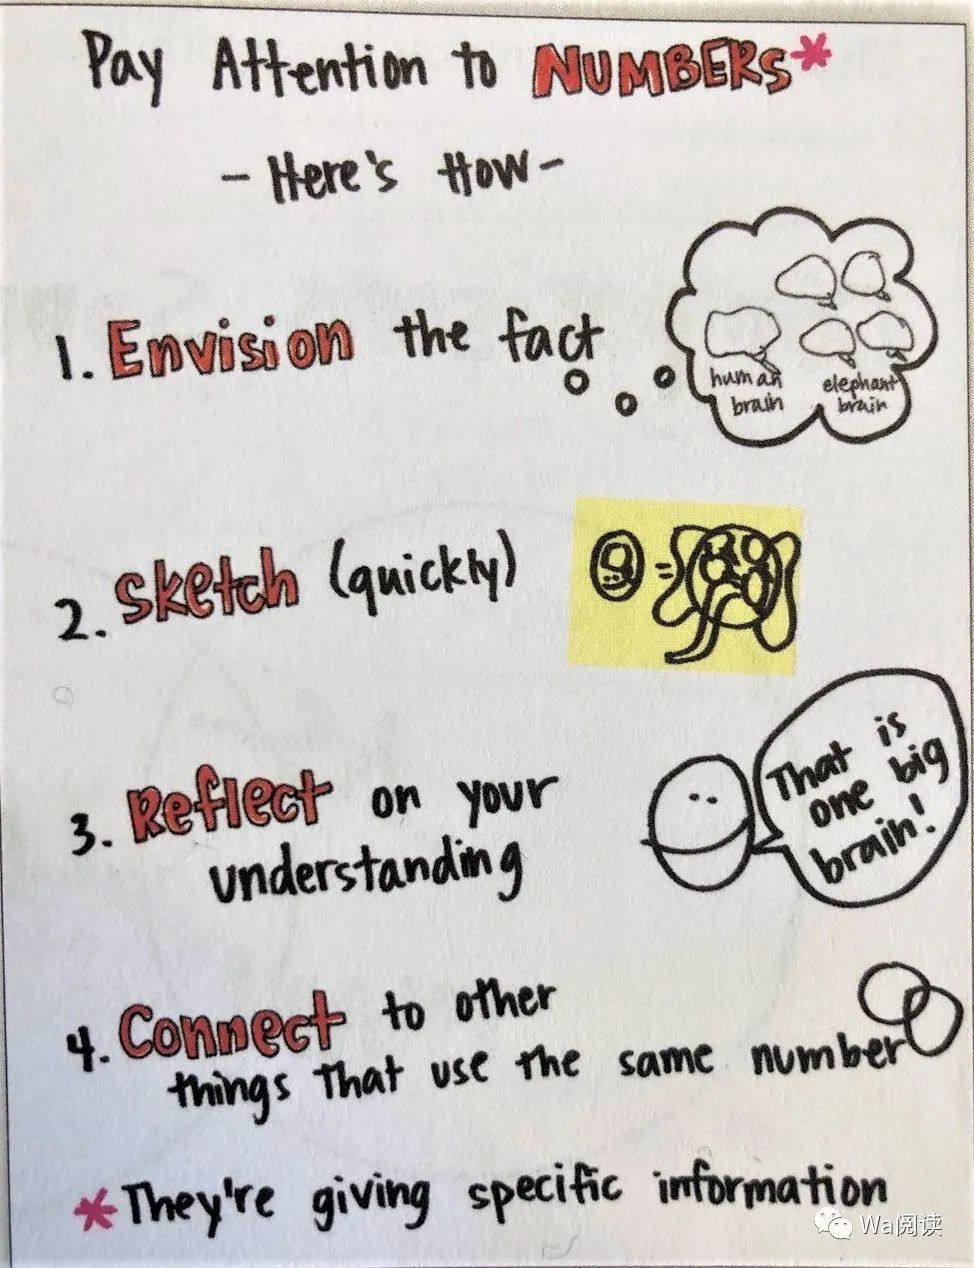 Pay Attention to NUMBERS*
- Here's How -
1. Envision the fact
human brain
elephant brain
2. Sketch (quickly)
=
3. Reflect on your
understanding
That is
one big
brain!
4. Connect to other
things that use the same number
*They're giving specific information
Wa阅读